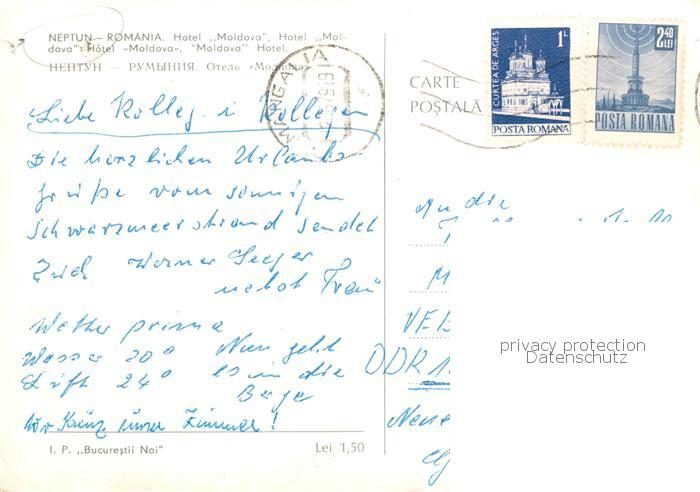 NEPTUN — ROMÂNIA. Hotel ,,Moldova", Hotel ,,Mol-
dova"; Hôtel «Moldova», "Moldova" Hotel.
НЕПТУН — РУМЫНИЯ. Отель «Молдова»
MANGALIA
CARTE
POȘTALĂ
1L
CURTEA DE ARGEȘ
POSTA ROMANA
2,40
LEI
POSTA ROMANA
Liebe Kolleg. u Kollegen
Die herzlichen Urlaubs
grüße vom sonnigen
Schwarzmeerstrand sendet
Euch Werner Seeger
nebst Frau
Wetter prima
Wasser 20° Nun geht
Luft 24° es in die
Berge
Kreuz unser Zimmer!
An die
M
VEB
DDR 1
I. P. ,,Bucureștii Noi"
Lei 1,50
privacy protection
Datenschutz